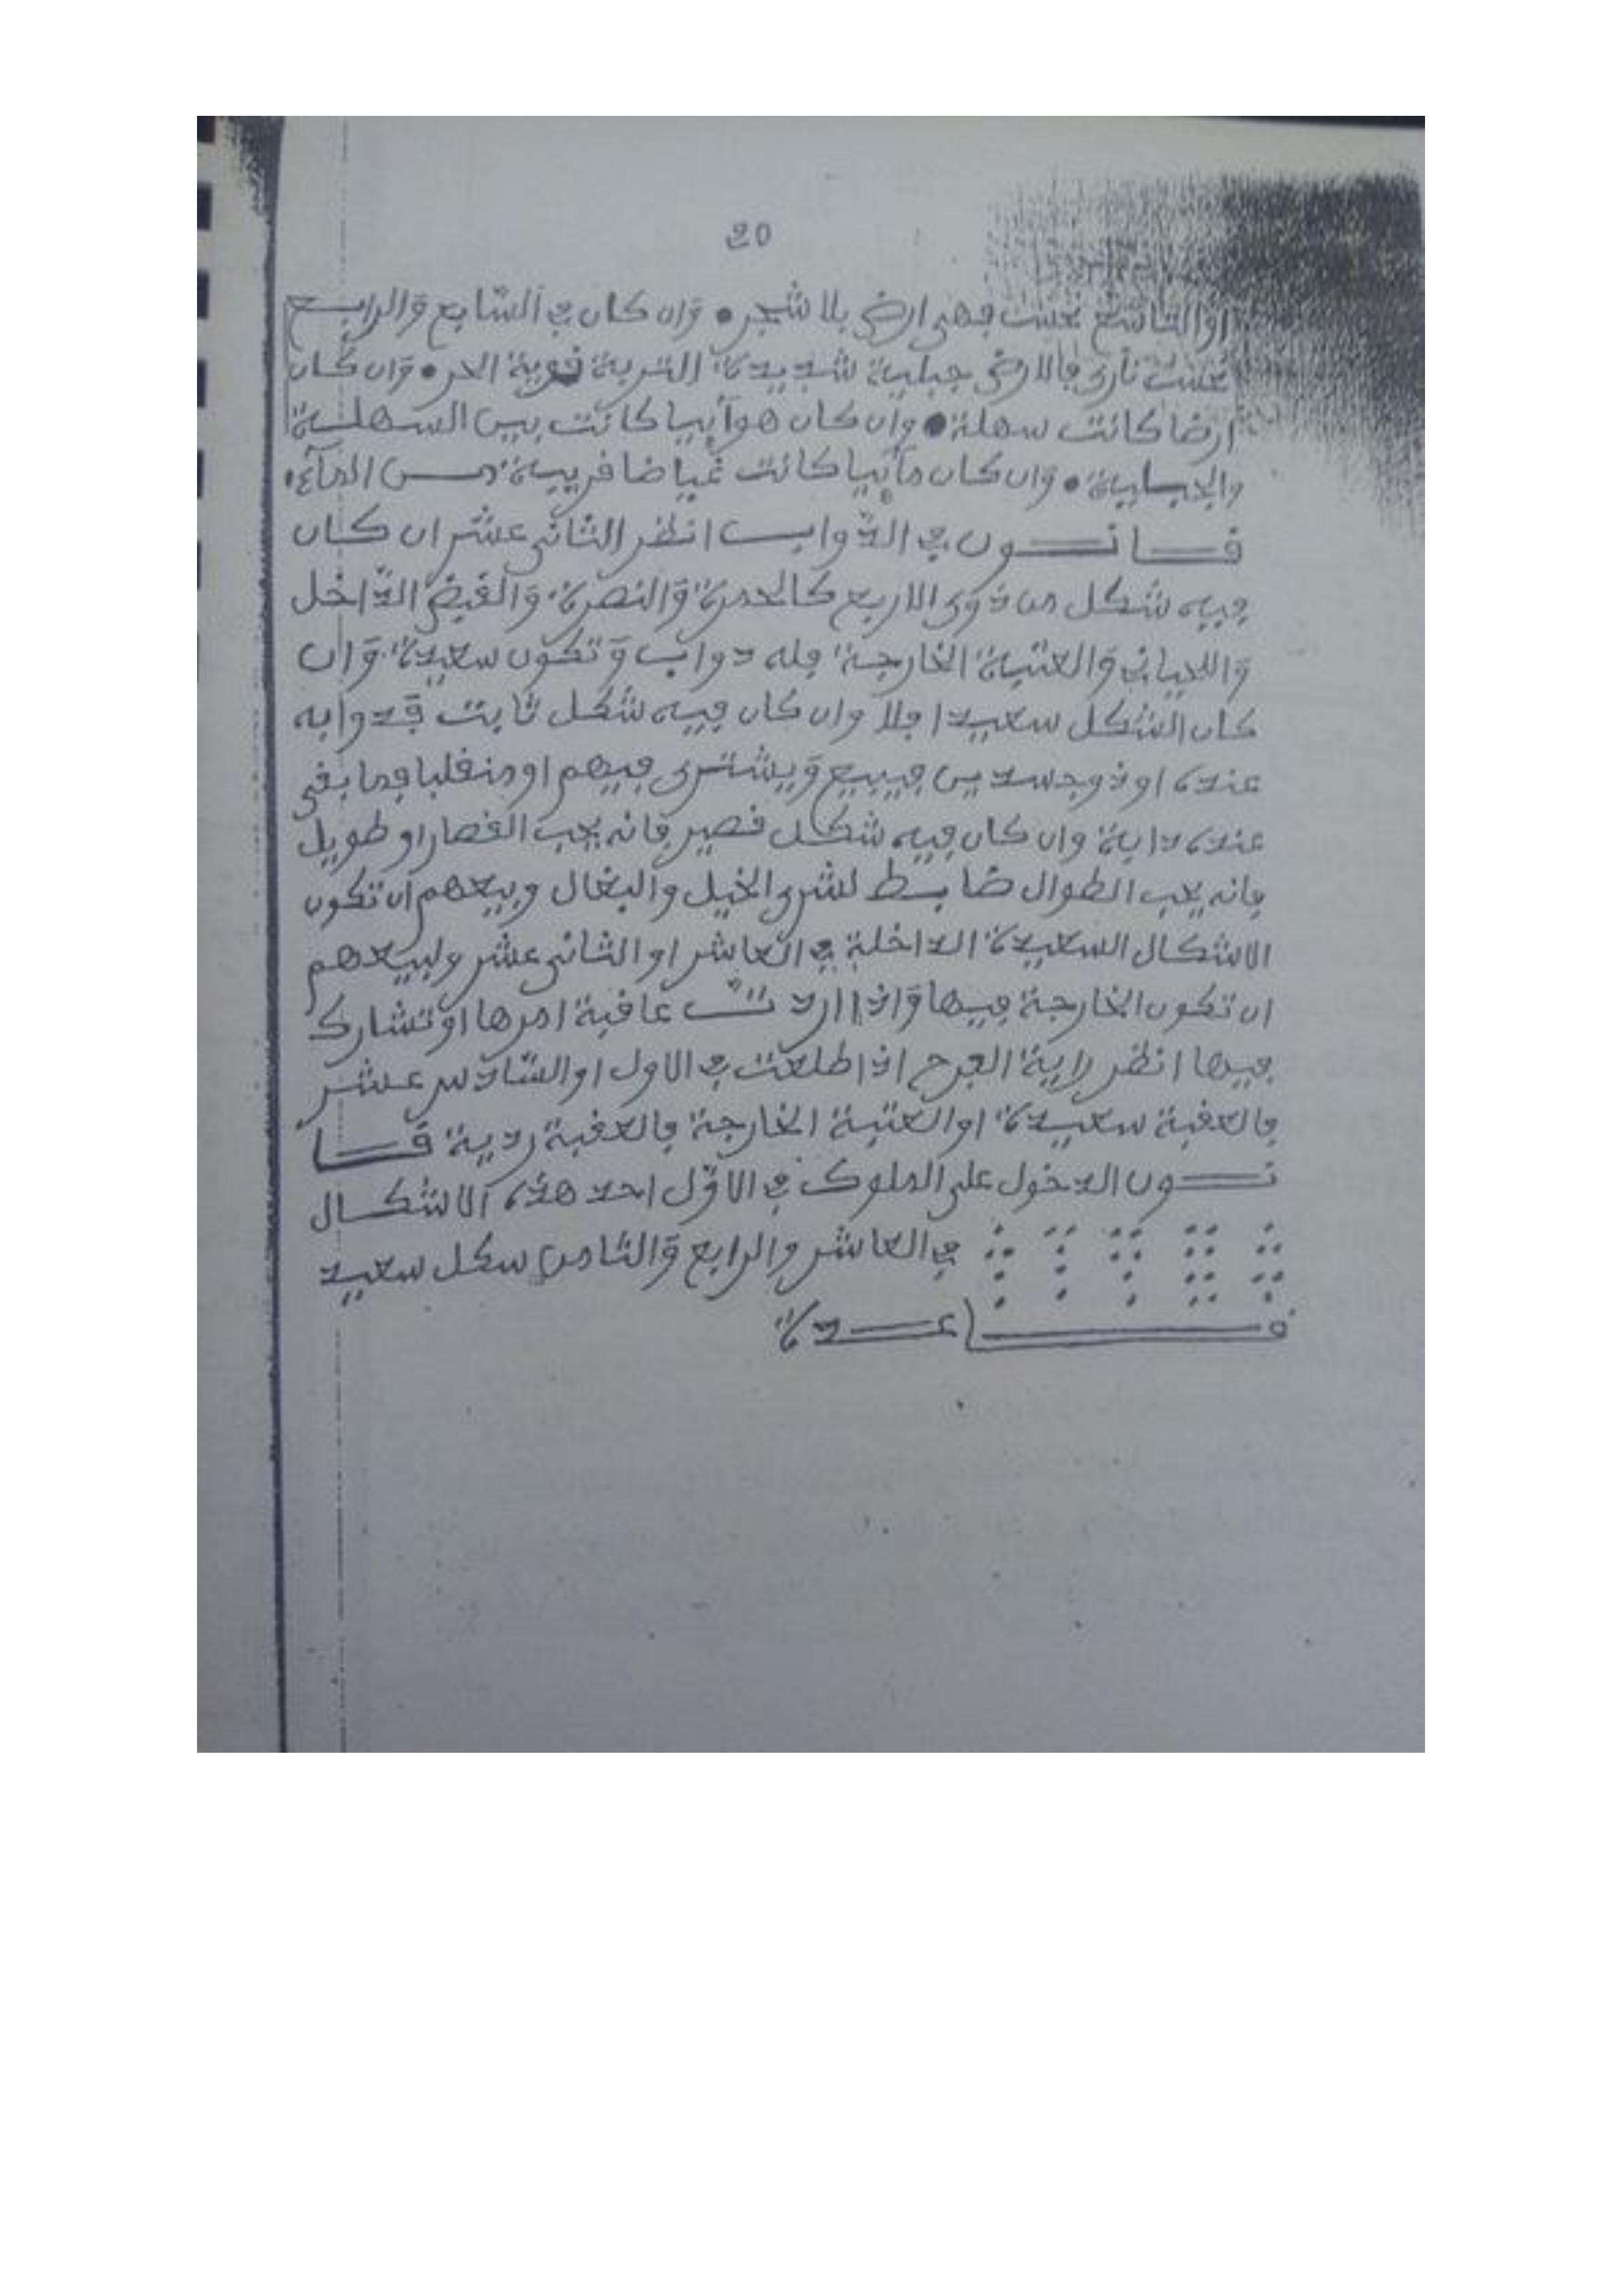 20
او التاسع نحست فهي ارض بلا شجر • وان كان في السّابع والرابع
نحست نارى فالارض جبلية شديدة التربة قوية الحر • وان كان
ارضا كانت سهلة • وان كان هوآييا كانت بين السهلة
والجبلية • وان كان مآييا كانت غياضا قريبة من المآء •
قانون في الدّواب انظر الثاني عشر ان كان
فييه شكل من ذوى الاربع كالحمرة والنصرة والقبض الدّاخل
واللحياني والعتبة الخارجة فله دواب وتكون سعيدة وان
كان الشكل سعيدا فلا وان كان فييه شكل ثابت فدوابه
عنده او ذو جسدين فيبيع ويشترى فيهم او منقلبا فما بقى
عنده دابة وان كان فييه شكل قصير فانه يحب القصار او طويل
فانه يحب الطوال ضابط لشرى الخيل والبغال وبيعهم ان تكون
الاشكال السعيدة الداخلة في العاشر او الثاني عشر ولبيعهم
ان تكون الخارجة فيها واذا اردت عاقبة امرها او تشارك
فيها انظر راية الفرح اذا طلعت في الاول او السّادس عشر
فالعقبة سعيدة او العتبة الخارجة فالعقبة ردية قا
نون الدخول على الملوك في الاوّل احد هذه الاشكال
في العاشر والرابع والثامن سكل سعيد
قاعدة